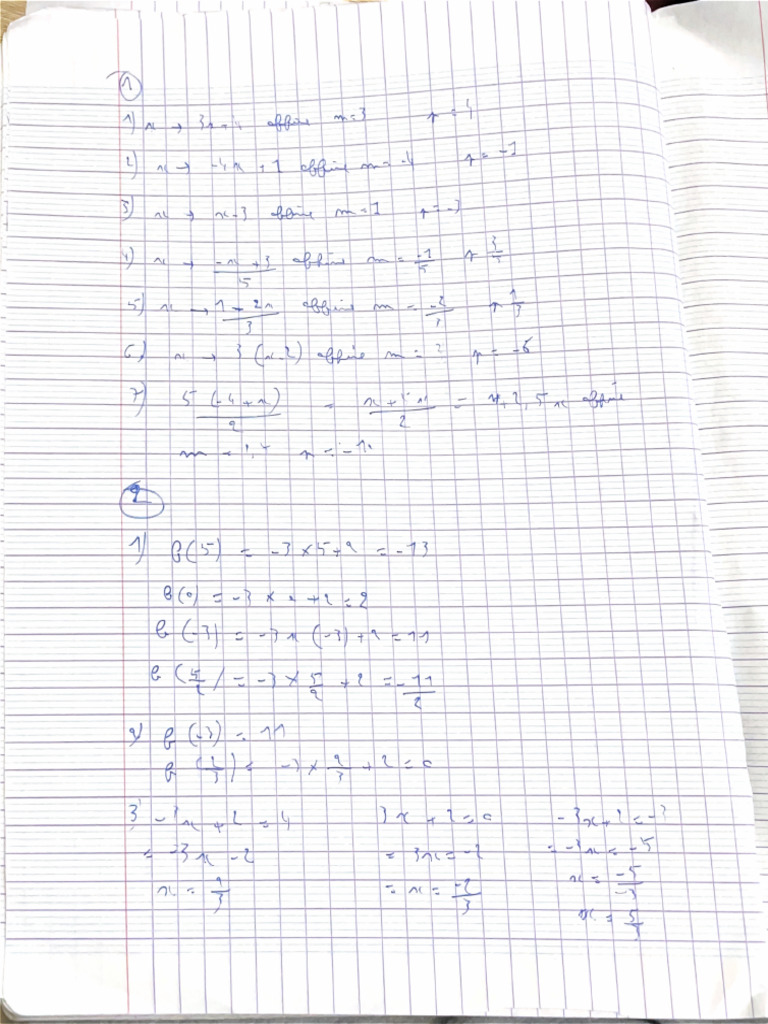 1
1) x → 3x-4 affine m=3 p=4
2) x → -4x+1 affine m=-4 p=-1
3) x → x-3 affine m=1 p=-3
4) x → (-x+3)/5 affine m = -1/5 p 3/5
5) x → (1-2x)/3 affine m = -2/3 p 1/3
6) x → 3(x-2) affine m = 3 p = -6
7) 5(-4+x)/2 = = 2,5x affine
m = p = -10
2
1) f(5) = -3×5+2 = -13
f(0) = -3×0+2=2
f(-3) = -3×(-3)+2=11
f(5/2) = -3×5/2+2 = -11/2
2) f(-3) = 11
f(2/3) = -3×2/3+2=0
3) -3x+2=4 3x+2=0 -3x+2=-3
= -3x-2 = 3x=-2 = -3x=-5
x = /3 = x = -2/3 x = -5/-3
x = 5/3